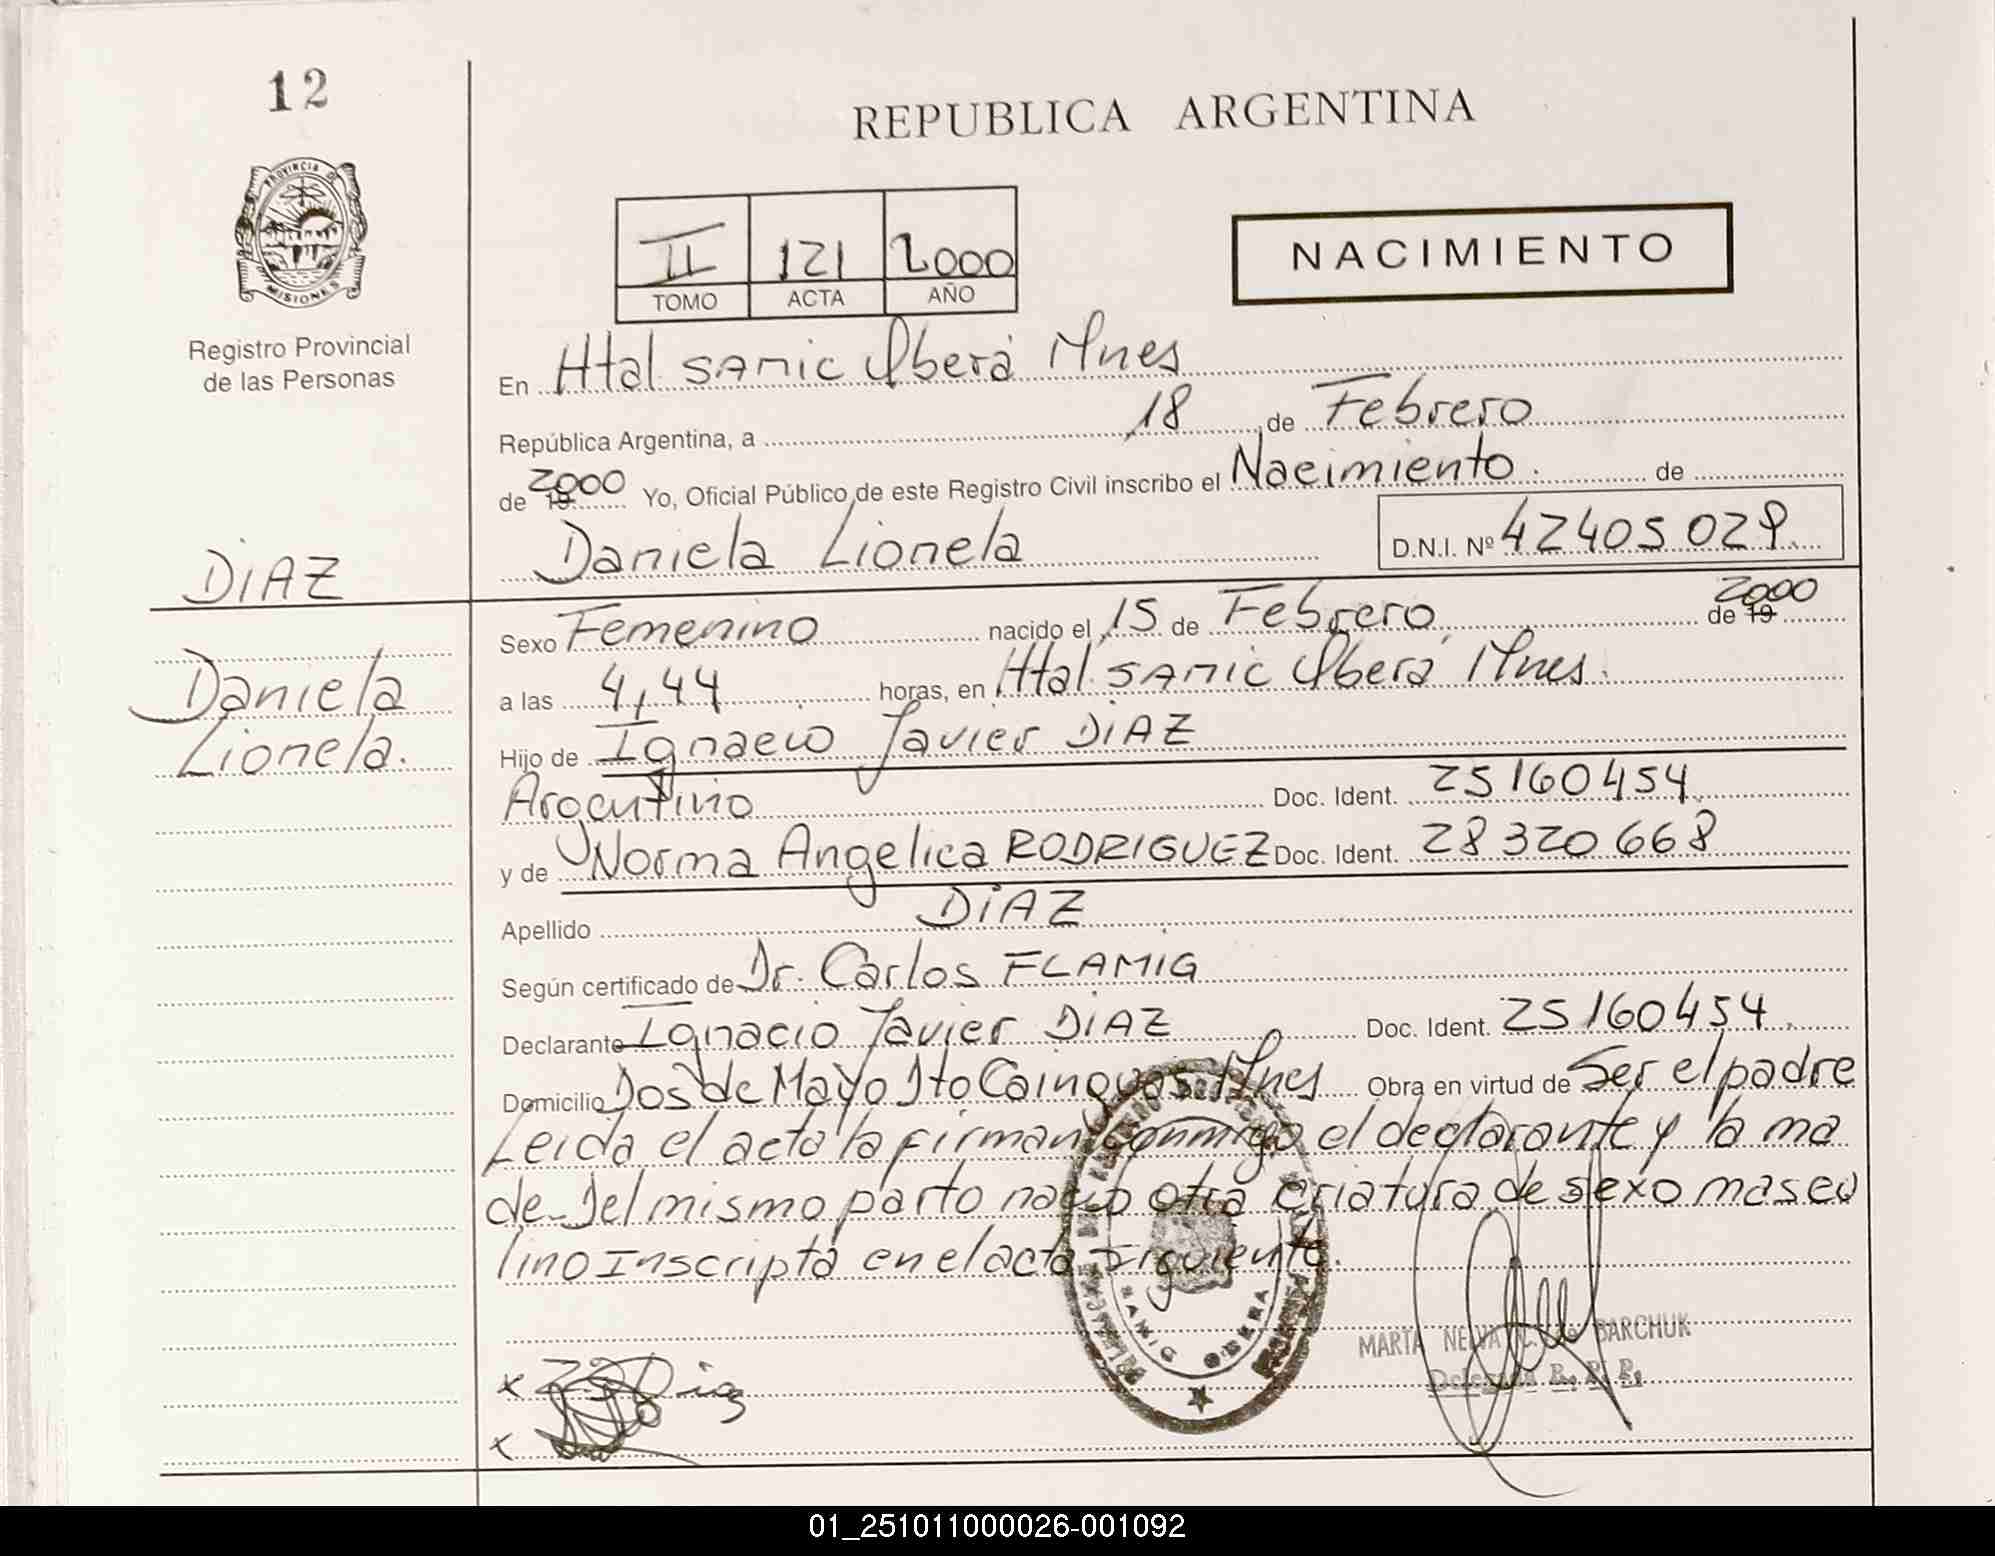 12
REPUBLICA ARGENTINA
PROVINCIA D
MISIONES
II 121 2000
TOMO ACTA AÑO
NACIMIENTO
Registro Provincial
de las Personas
En Htal samic Oberá Mnes
República Argentina, a 18 de Febrero
de 2000 19 Yo, Oficial Público de este Registro Civil inscribo el Nacimiento. de
DiAZ
Daniela Lionela D.N.I. Nº 42405029.
Daniela
Lionela.
Sexo Femenino nacido el 15 de Febrero de 19 2000
a las 4,44 horas, en Htal samic Oberá Mnes.
Hijo de Ignacio Javier DiAZ
Argentino Doc. Ident. 25160454
y de Norma Angelica RODRIGUEZ Doc. Ident. 28320668
Apellido DiAZ
Según certificado de Dr. Carlos FLAMIG
Declarante Ignacio Javier DiAZ Doc. Ident. 25160454.
Domicilio Dos de Mayo Dto Cainguas Mnes Obra en virtud de Ser el padre
Leida el acta la firman conmigo el declarante y la ma
de_ Del mismo parto nacio otra criatura de sexo mascu
lino Inscripta en el acta siguiente.
SAMIC OBERA
MARTA BARCHUK
Delegada R. P. P.
x Diaz
x
01_251011000026-001092